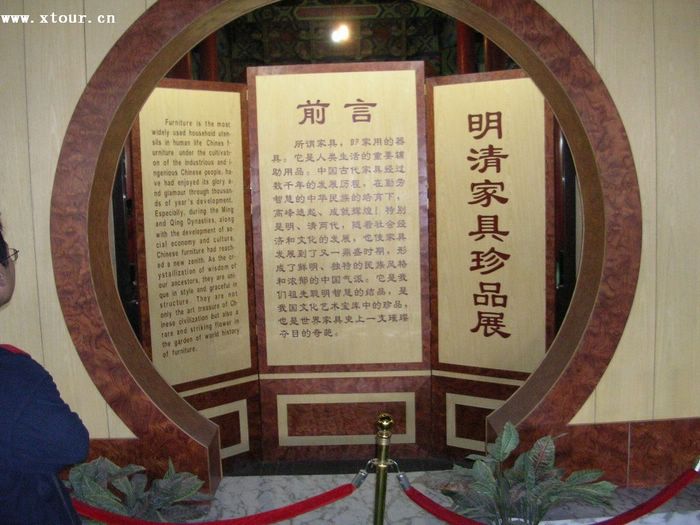 www.xtour.cn
Furniture is the most
widely used household uten-
sils in human life Chines f-
urniture under the cultivat-
ion of the Industrious and i-
ngenious Chinese people, ha-
ve had enjoyed its glory a-
nd glamour through thousan-
ds of year's development.
Especially, during the Ming
and Qing Dynasties, along
with the development of so-
cial economy and culture,
Chinese furniture had reach-
ed a new zenith. As the cr-
ystallization of wisdom of
our ancestors, they are uni-
que in style and graceful in
structure. They are not
only the art treasure of Ch-
inese civilization but also a
rare and striking flower in
the garden of world history
of furniture.
前言
所谓家具，即家用的器
具。它是人类生活的重要辅
助用品。中国古代家具经过
数千年的发展历程，在勤劳
智慧的中华民族的培育下，
高峰迭起、成就辉煌！特别
是明、清两代，随着社会经
济和文化的发展，也使家具
发展到了又一鼎盛时期，形
成了鲜明、独特的民族风格
和浓郁的中国气派。它是我
们祖先聪明智慧的结晶，是
我国文化艺术宝库中的珍品，
也是世界家具史上一支璀璨
夺目的奇葩。
明清家具珍品展